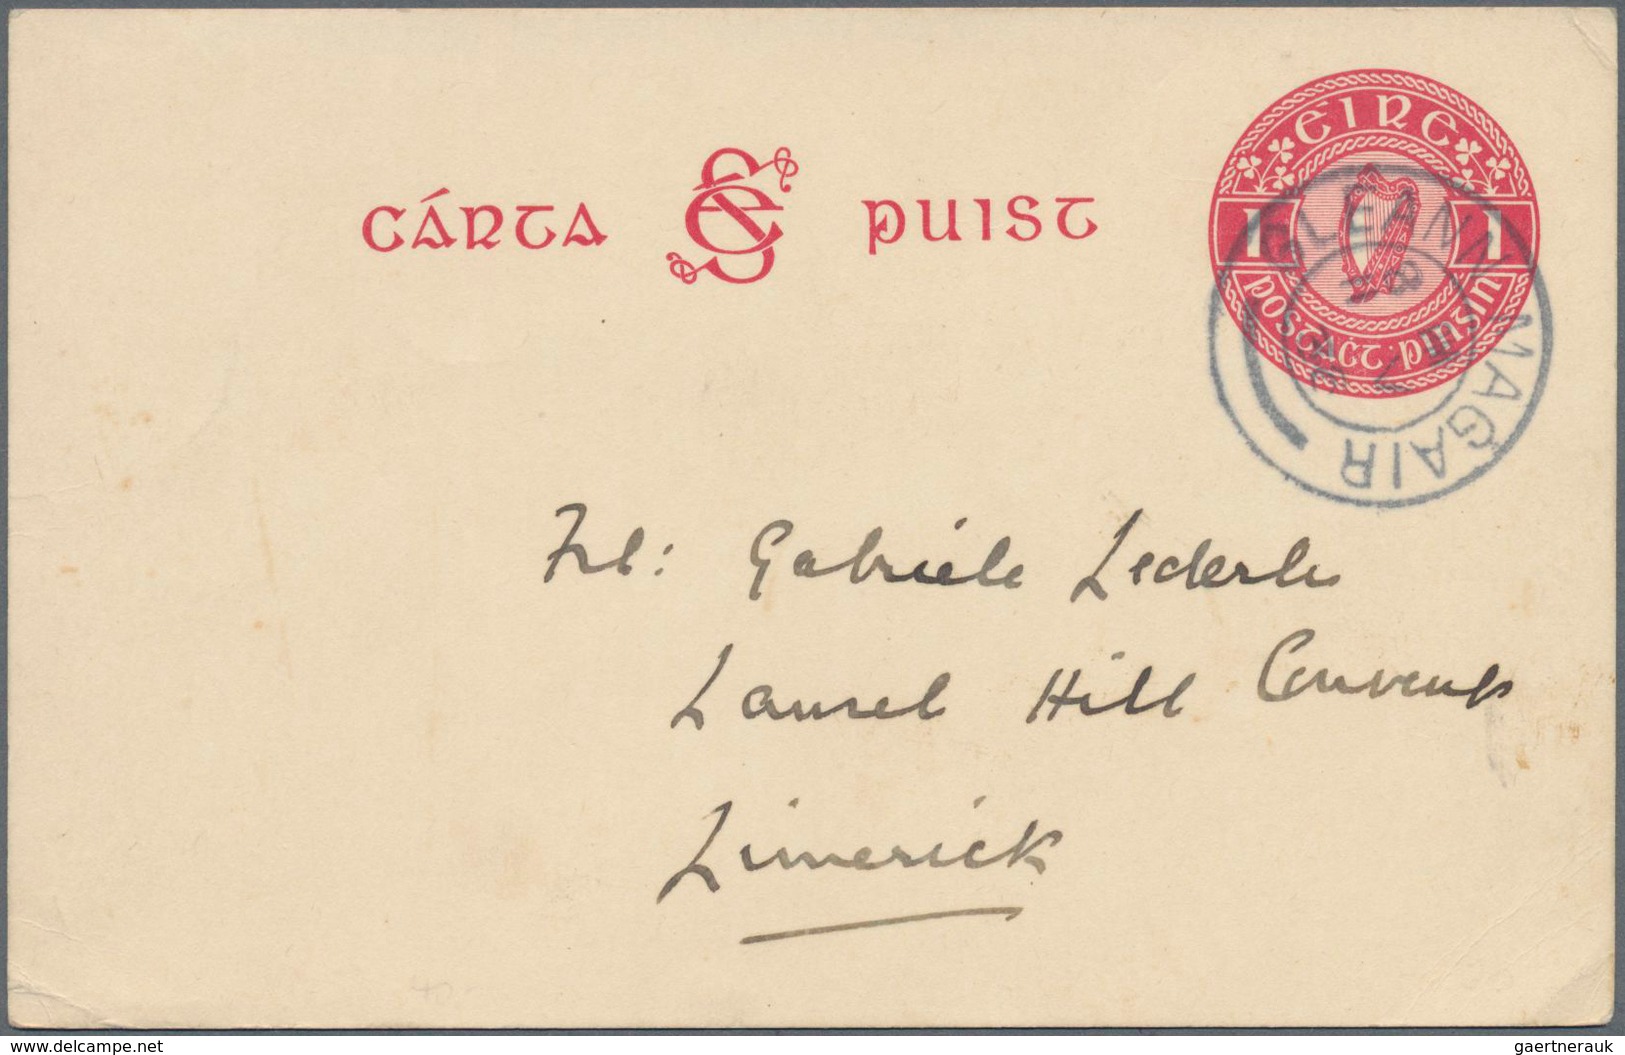 CÁRTA SE PUIST
ÉIRE
1 1
POSTACT. PINSIN
GLEANN MAGAIR
7 III
Frl: Gabriele Lederle
Laurel Hill Convent
Limerick
www.delcampe.net
gaertnerauk